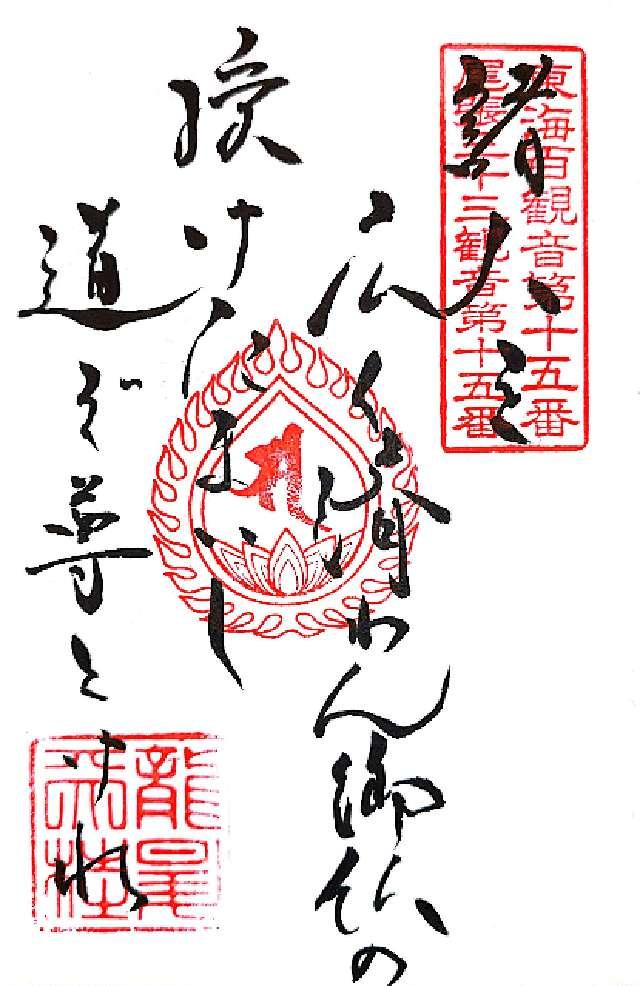 東海百観音第十五番
尾張三十三観音第十五番
諸人を
広く済わん御仏の
授けたまいし
道ぞ尊とけれ